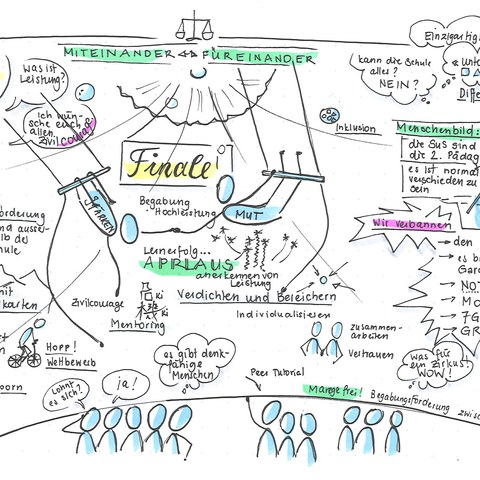 MITEINANDER ↔ FÜREINANDER
Was ist
Leistung?
Ich wün-
sche euch
allen
Zivilcourage
Finale
STÄRKEN
MUT
Begabung
Hochleistung
Lernerfolg...
APPLAUS
anerkennen von
Leistung
Verdichten und Bereichern
Individualisieren
Zivilcourage
Ki
Ki
Mentoring
Inklusion
kann die Schule
alles?
NEIN?
Einzigartig
Menschenbild:
die SuS sind
die 2. Pädag
es ist normal
verschieden zu
sein
Wir verbannen
→ den
→ es b
→ NO
→ MO
→ 7G
→ GR
zusammen-
arbeiten
Vertrauen
Was für
ein Zirkus!
WOW!
örderung
chule
mit
karten
Hopp!
Wettbewerb
oorn
es gibt denk-
fähige
Menschen
Lohnt
es sich?
ja!
Peer Tutorial
Manege frei!
Begabungsförderung